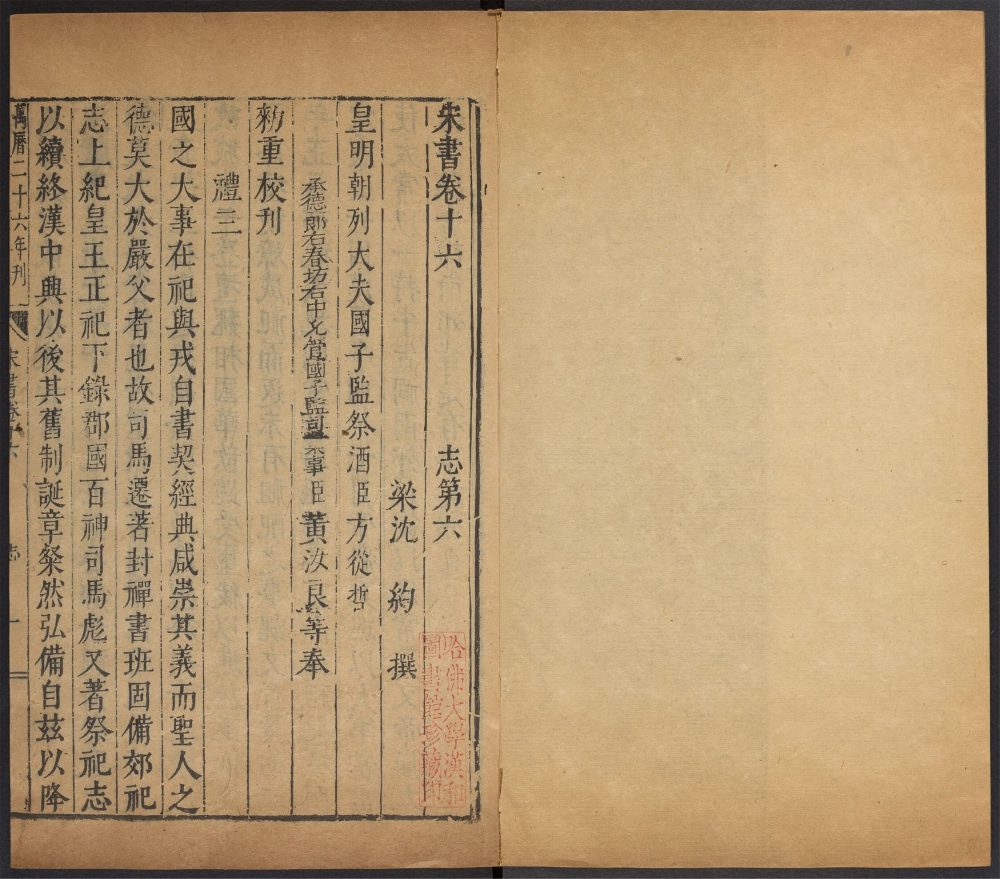 宋書卷十六 志第六
梁沈 約 撰
皇明朝列大夫國子監祭酒臣方從哲
承德郎右春坊右中允管國子監司業事臣黃汝良等奉
勑重校刊
禮三
國之大事在祀與戎自書契經典咸崇其義而聖人之
德莫大於嚴父者也故司馬遷著封禪書班固備郊祀
志上紀皇王正祀下錄郡國百神司馬彪又著祭祀志
以續終漢中興以後其舊制誕章粲然弘備自玆以降
萬曆二十六年刊 宋書卷十六 志 一
哈佛大學漢和
圖書館珍藏印